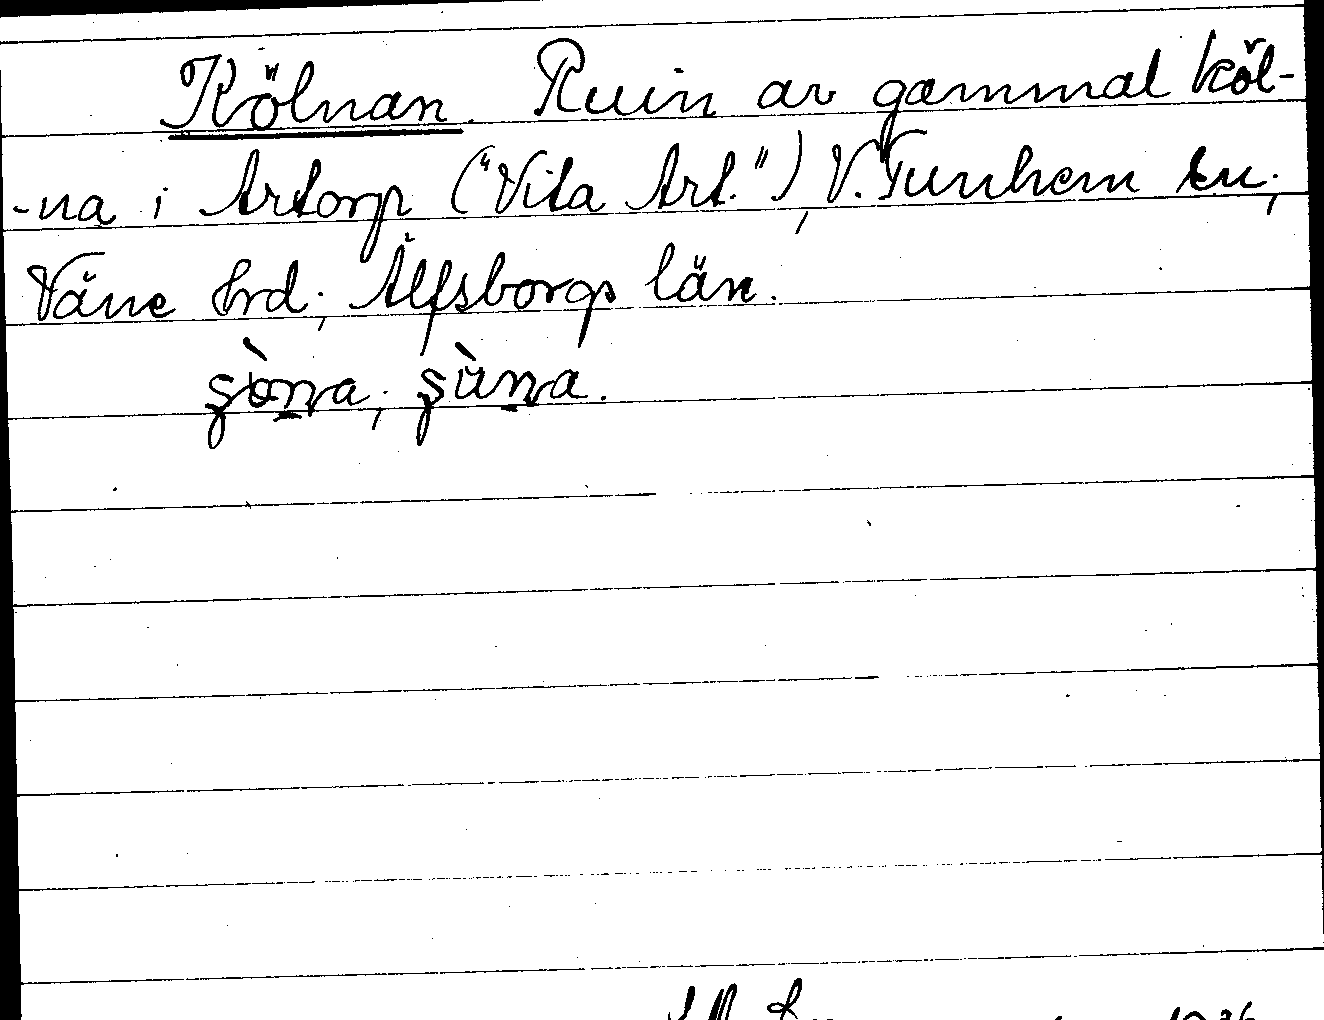 Kölnan. Ruin av gammal köl-
-na i Artorp ("Vita Art."), V. Tunhem sn;
Väne hrd; Älfsborgs län.
şòna; şùna.